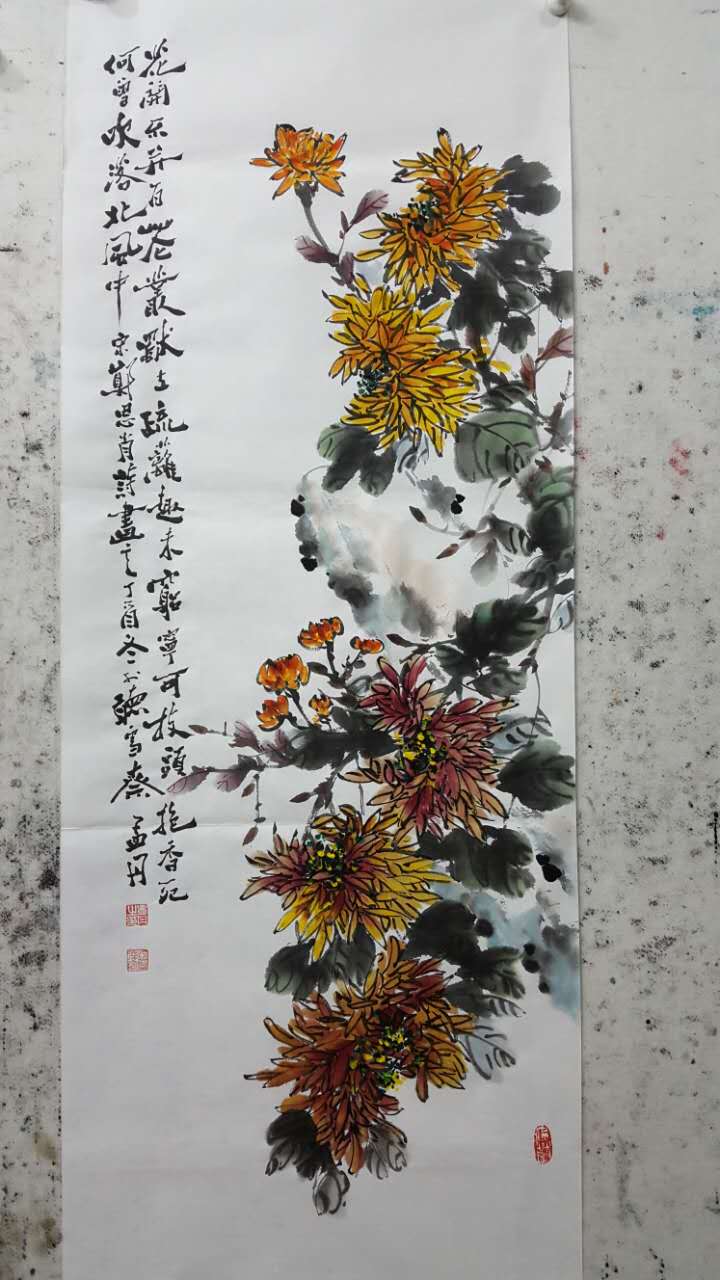 花開不并百花叢獨立疏籬趣未窮寧可枝頭抱香死
何曾吹落北風中宋鄭思肖詩畫之丁酉冬於聽雪齋孟丹